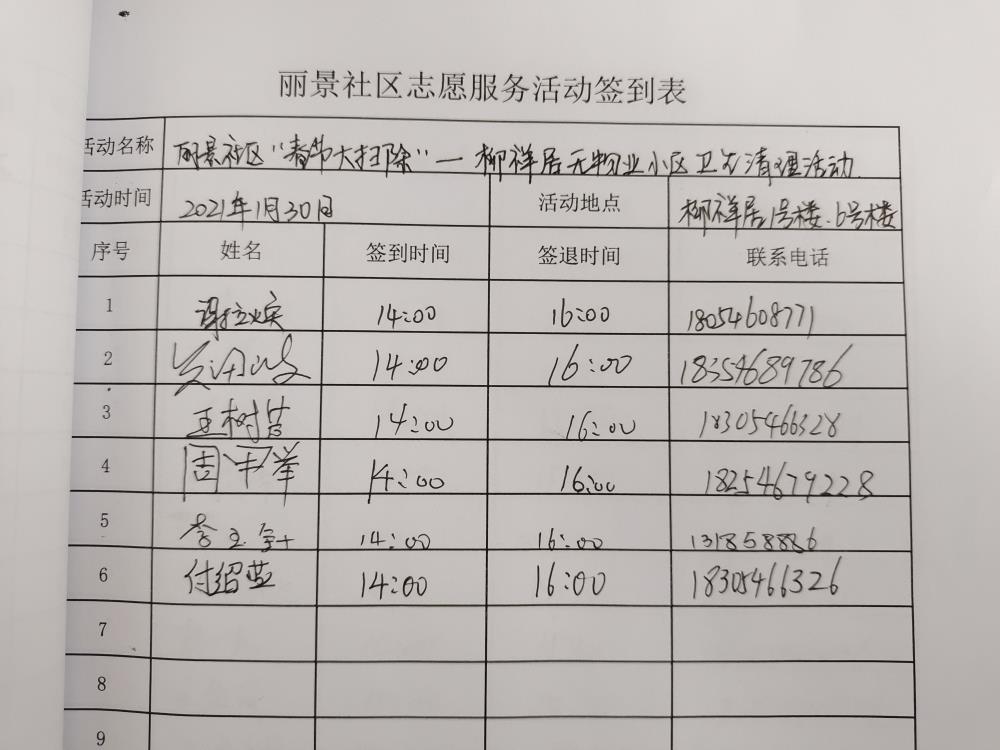 丽景社区志愿服务活动签到表
活动名称 丽景社区"春节大扫除"一柳祥居无物业小区卫生清理活动
活动时间 2021年1月30日 活动地点 柳祥居1号楼、6号楼
序号 姓名 签到时间 签退时间 联系电话
1 14:00 16:00 18054608771
2 14:00 16:00 18354689786
3 王树 14:00 16:00 18305466328
4 周 举 14:00 16:00 18254679228
5 李玉 14:00 16:00
6 付绍蓝 14:00 16:00 18305466326
7
8
9